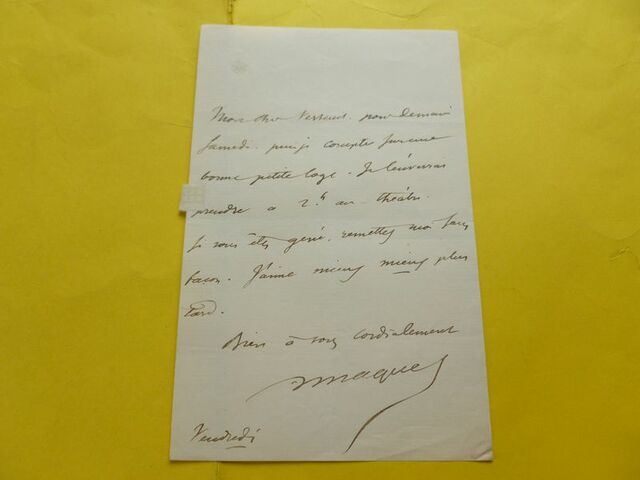 Mon cher Verteuil. pour demain
samedi. puis-je compter sur une
bonne petite loge. Je l'enverrai
prendre à 2h au théâtre.
Si vous êtes gêné, remettez moi sans
façon. J'aime mieux mieux plus
tard.
Bien à vous cordialement
Maquet
Vendredi